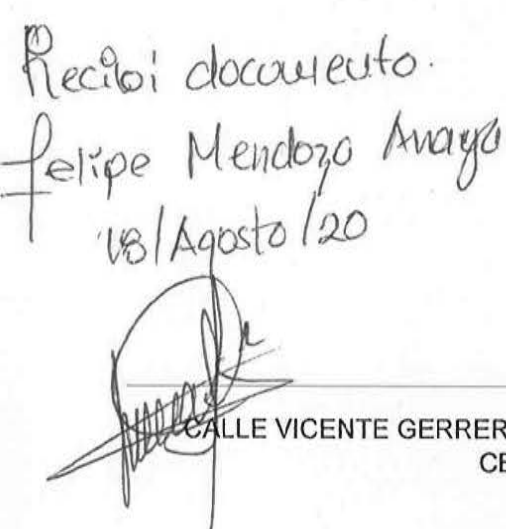 Recibi documento.
Felipe Mendoza Anaya
18/Agosto/20
CALLE VICENTE GERRER
CE